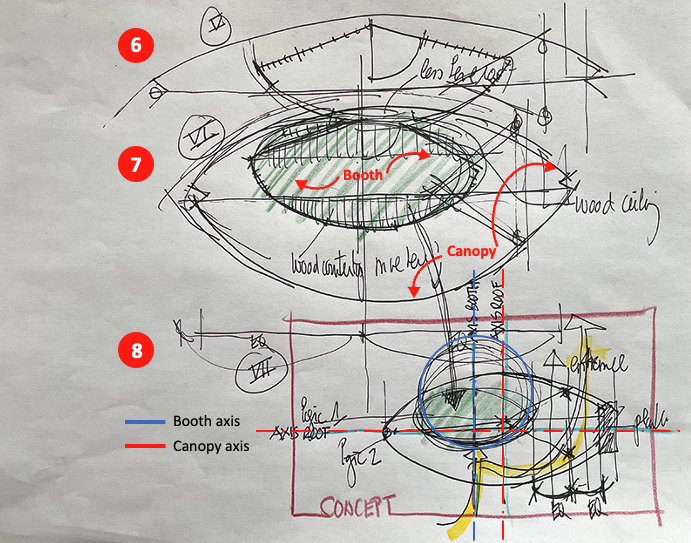 6
IV
less
7
VI
Booth
wood ceiling
Canopy
8
EQ
VII
AXIS BOOTH
AXIS ROOF
entrance
Booth axis
Canopy axis
Logic 1
AXIS ROOF
Logic 2
EQ EQ
CONCEPT